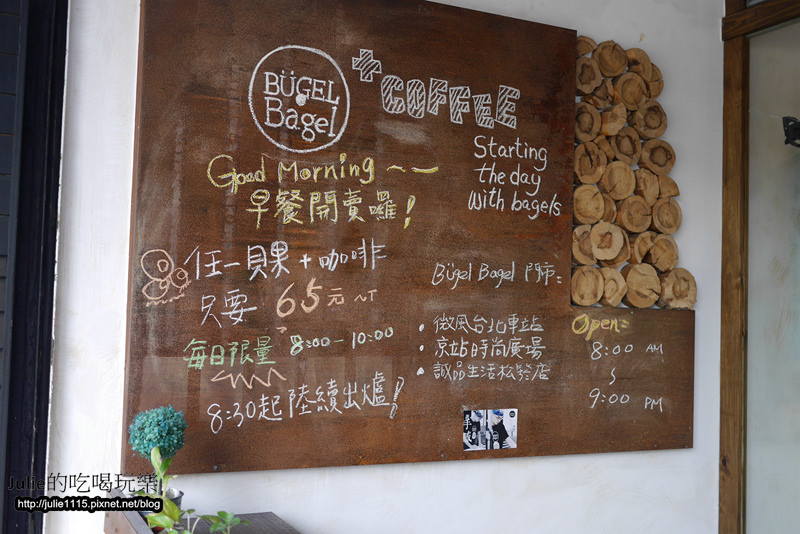 BÜGEL
Bagel
+ COFFEE
Starting
the day
with bagels
Good Morning ~ ~
早餐開賣囉!
任一貝果+咖啡
只要 65元 NT
每日限量 8:00-10:00
8:30起陸續出爐!
Bügel Bagel 門市:
• 微風台北車站
• 京站時尚廣場
• 誠品生活松菸店
Open:
8:00 AM
~
9:00 PM
Julie的吃喝玩樂
http://julie1115.pixnet.net/blog